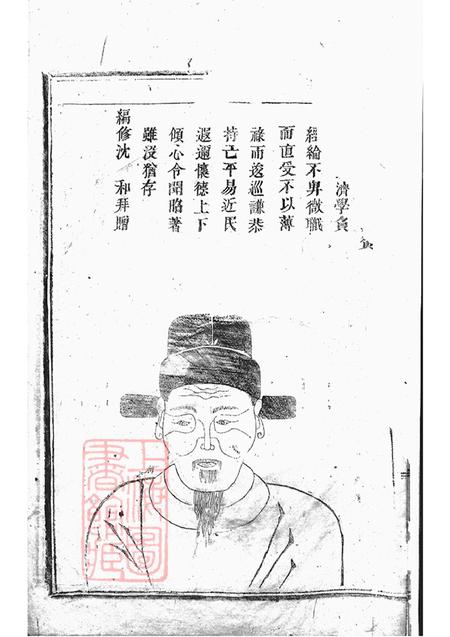 濟學負
經綸不卑微職
而直受不以薄
祿而逡巡謙恭
持己平易近民
遐邇懷德上下
傾心令聞昭著
雖沒猶存
編修沈 和拜贈
上海圖
書館藏